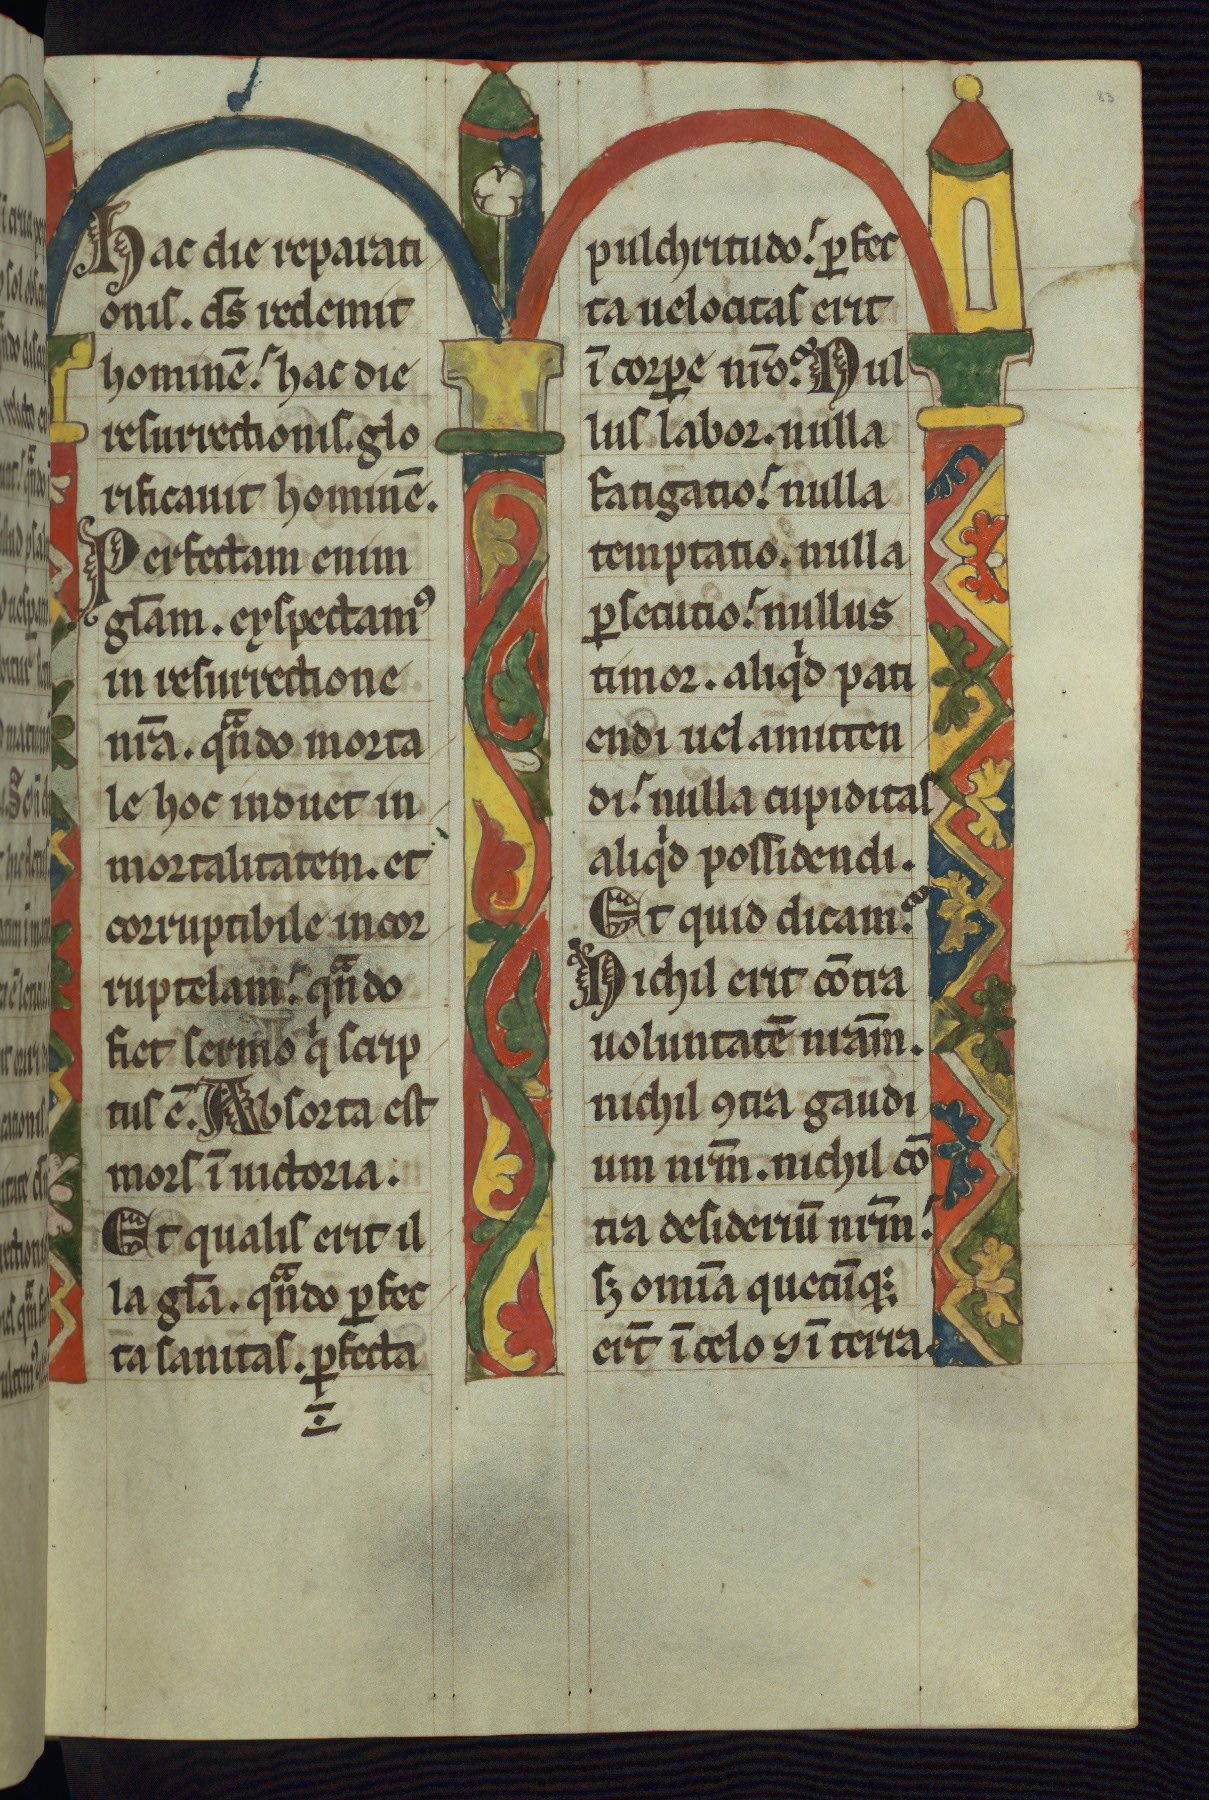 83
Hac die reparati
onis. ds̄ redemit
hominē. hac die
resurrectionis. glo
rificauit hominē.
Perfectam enim
gl̄am. exspectamꝰ
in resurrectione
nr̄a. qn̄do morta
le hoc induet in
mortalitatem. et
corruptibile incor
ruptelam. qn̄do
fiet sermo qͥ scrip
tus ē. Absorta est
mors ī uictoria.
Et qualis erit il
la gl̄a. qn̄do ꝑfec
ta sanitas. ꝑfecta
pulchritudo. ꝑfec
ta uelocitas erit
ī corꝑe nr̄o. Nul
lus labor. nulla
fatigatio. nulla
temptatio. nulla
ꝑsecutio. nullus
timor. aliqͥd pati
endi uel amitten
di. nulla cupiditas
aliqͥd possidendi.
Et quid dicam.
Nichil erit cōtra
uoluntatē nr̄am.
nichil ꝯtra gaudi
um nr̄m. nichil cō
tra desideriū nr̄m.
sꝫ omīa quecūqꝫ
er̄t ī celo ⁊ ī terra.